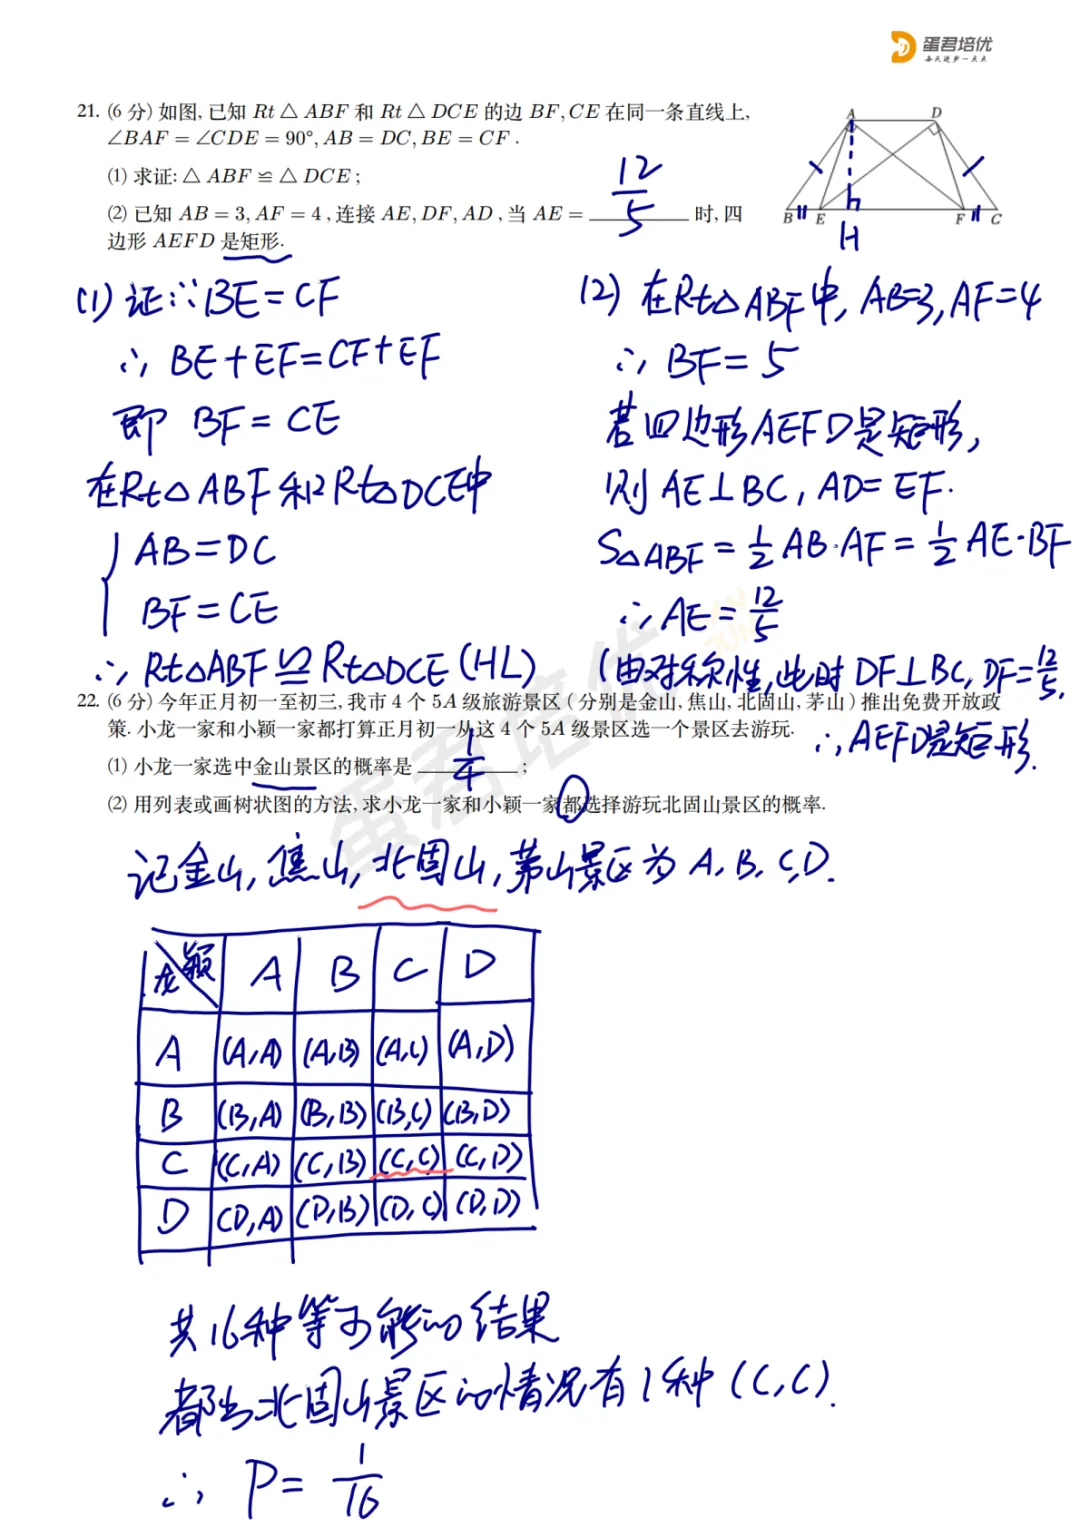 蛋君培优
每天进步一点点
21. (6 分) 如图, 已知 Rt △ ABF 和 Rt △ DCE 的边 BF, CE 在同一条直线上,
∠BAF = ∠CDE = 90°, AB = DC, BE = CF .
(1) 求证: △ ABF ≌ △ DCE ;
(2) 已知 AB = 3, AF = 4 , 连接 AE, DF, AD , 当 AE = 12/5 时, 四
边形 AEFD 是矩形.
A D
B E F C
h
H
(1) 证: ∵ BE=CF
∴ BE+EF=CF+EF
即 BF=CE
在Rt△ABF和Rt△DCE中
{ AB=DC
BF=CE
∴ Rt△ABF≌Rt△DCE(HL)
(2) 在Rt△ABF中, AB=3, AF=4
∴ BF=5
若四边形AEFD是矩形,
则 AE⊥BC, AD=EF.
S△ABF = 1/2 AB·AF = 1/2 AE·BF
∴ AE = 12/5
(由对称性, 此时 DF⊥BC, DF=12/5.
∴ AEFD是矩形.
22. (6 分) 今年正月初一至初三, 我市 4 个 5A 级旅游景区 ( 分别是金山, 焦山, 北固山, 茅山 ) 推出免费开放政
策. 小龙一家和小颖一家都打算正月初一从这 4 个 5A 级景区选一个景区去游玩.
(1) 小龙一家选中金山景区的概率是 1/4 ;
(2) 用列表或画树状图的方法, 求小龙一家和小颖一家都选择游玩北固山景区的概率.
蛋君培优
记金山, 焦山, 北固山, 茅山景区为 A, B, C, D.
龙 颖 A B C D
A (A,A) (A,B) (A,C) (A,D)
B (B,A) (B,B) (B,C) (B,D)
C (C,A) (C,B) (C,C) (C,D)
D (D,A) (D,B) (D,C) (D,D)
共16种等可能的结果
都去北固山景区的情况有1种 (C,C).
∴ P= 1/16